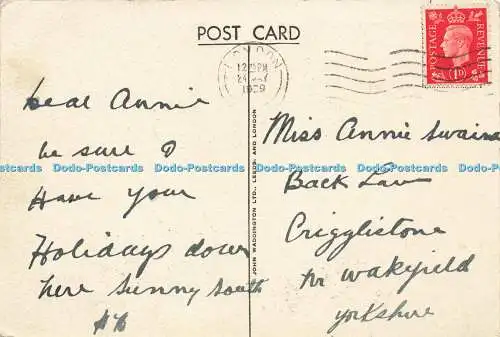 POST CARD
LONDON
1939
POSTAGE REVENUE
1D
Dear Annie
be sure &
Have your
Holidays down
here sunny south
JOHN WADDINGTON LTD., LEEDS, AND LONDON
Miss Annie Swain
Back Lane
Crigglestone
nr Wakefield
Yorkshire
Dodo-Postcards Dodo-Postcards Dodo-Postcards Dodo-Postcards Dodo-Postcards